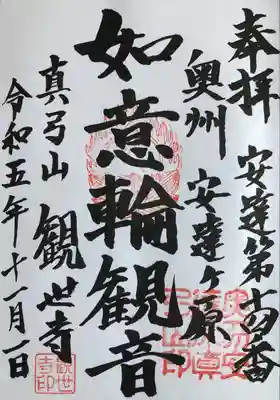 奉拝 安達第十四番
奥州 安達ヶ原
如意輪観音
真弓山 観世寺
令和五年十一月一日
観世寺印